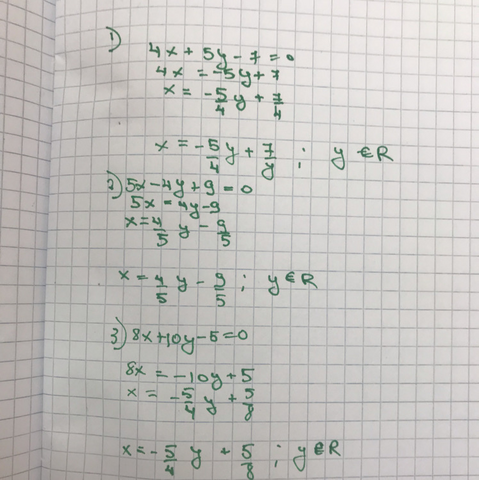 1)
4x + 5y - 7 = 0
4x = -5y + 7
x = -5/4 y + 7/4
x = -5/4 y + 7/y ; y ∈ R
2) 5x - 4y + 9 = 0
5x = 4y - 9
x = 4/5 y - 9/5
x = 4/5 y - 9/5 ; y ∈ R
3) 8x + 10y - 5 = 0
8x = -10y + 5
x = -5/4 y + 5/8
x = -5/4 y + 5/8 ; y ∈ R